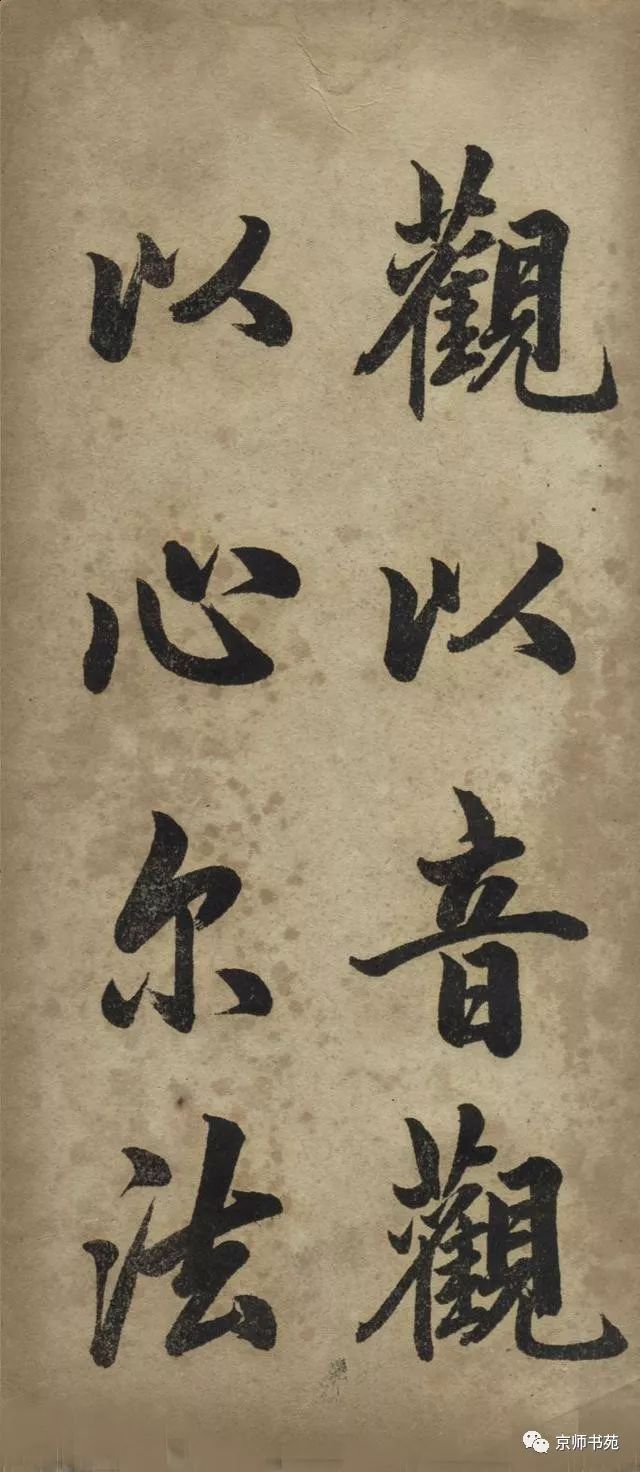 觀以音觀
以心尔法
京师书苑